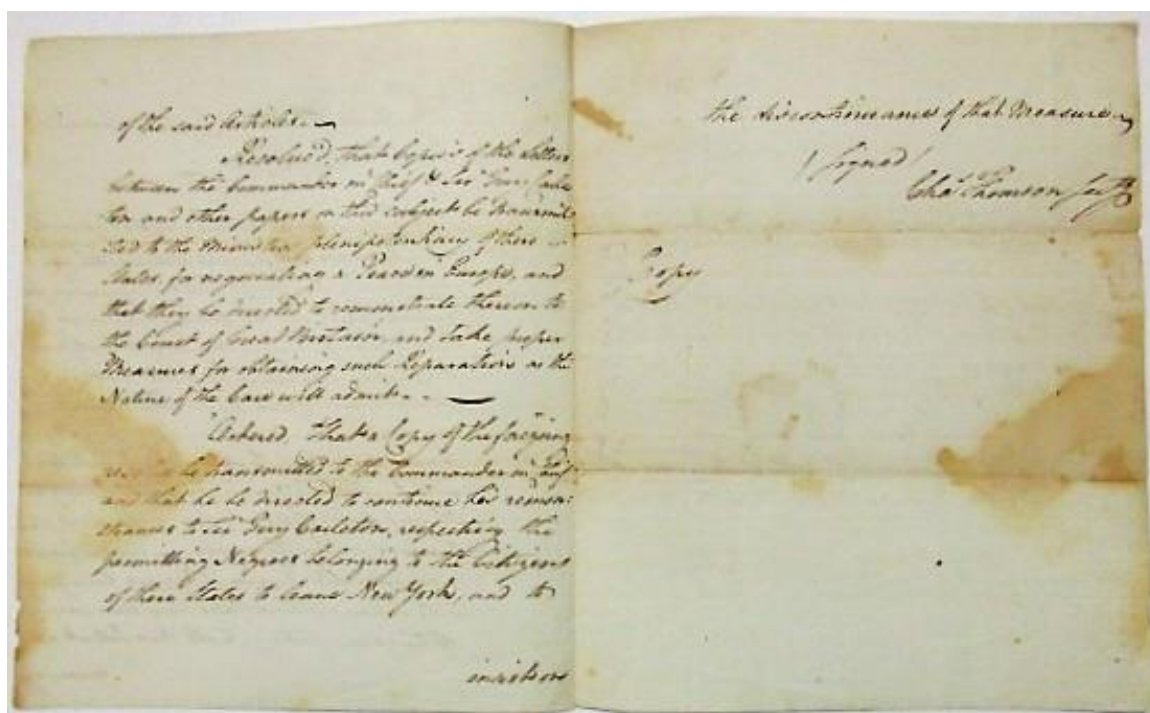 of the said Articles.
Resolved, that Copies of the Letters
between the Commander in Chief & Sir Guy Carle
ton and other papers on this subject be transmit
ted to the Ministers plenipotentiary of these
States for negociating a Peace in Europe, and
that they be directed to remonstrate thereon to
the Court of Great Britain, and take proper
Measures for obtaining such Reparation as the
Nature of the Case will admit.
Ordered, That a Copy of the foregoing
resolve be transmitted to the Commander in Chief
and that he be directed to continue his remon:
strances to Sir Guy Carleton, respecting the
permitting Negroes belonging to the Citizens
of these States to leave New York, and to
insist on
the discontinuance of that Measure
(Signed)
Chas Thomson Secy
Copy